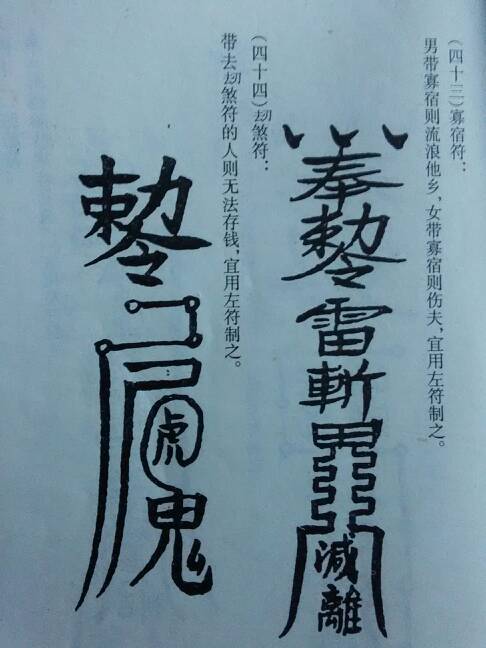 （四十三）寡宿符：
男带寡宿则流浪他乡，女带寡宿则伤夫，宜用左符制之。
奉勅令雷斬
減離
（四十四）刧煞符：
带去刧煞符的人则无法存钱；宜用左符制之。
勅令
虎
鬼